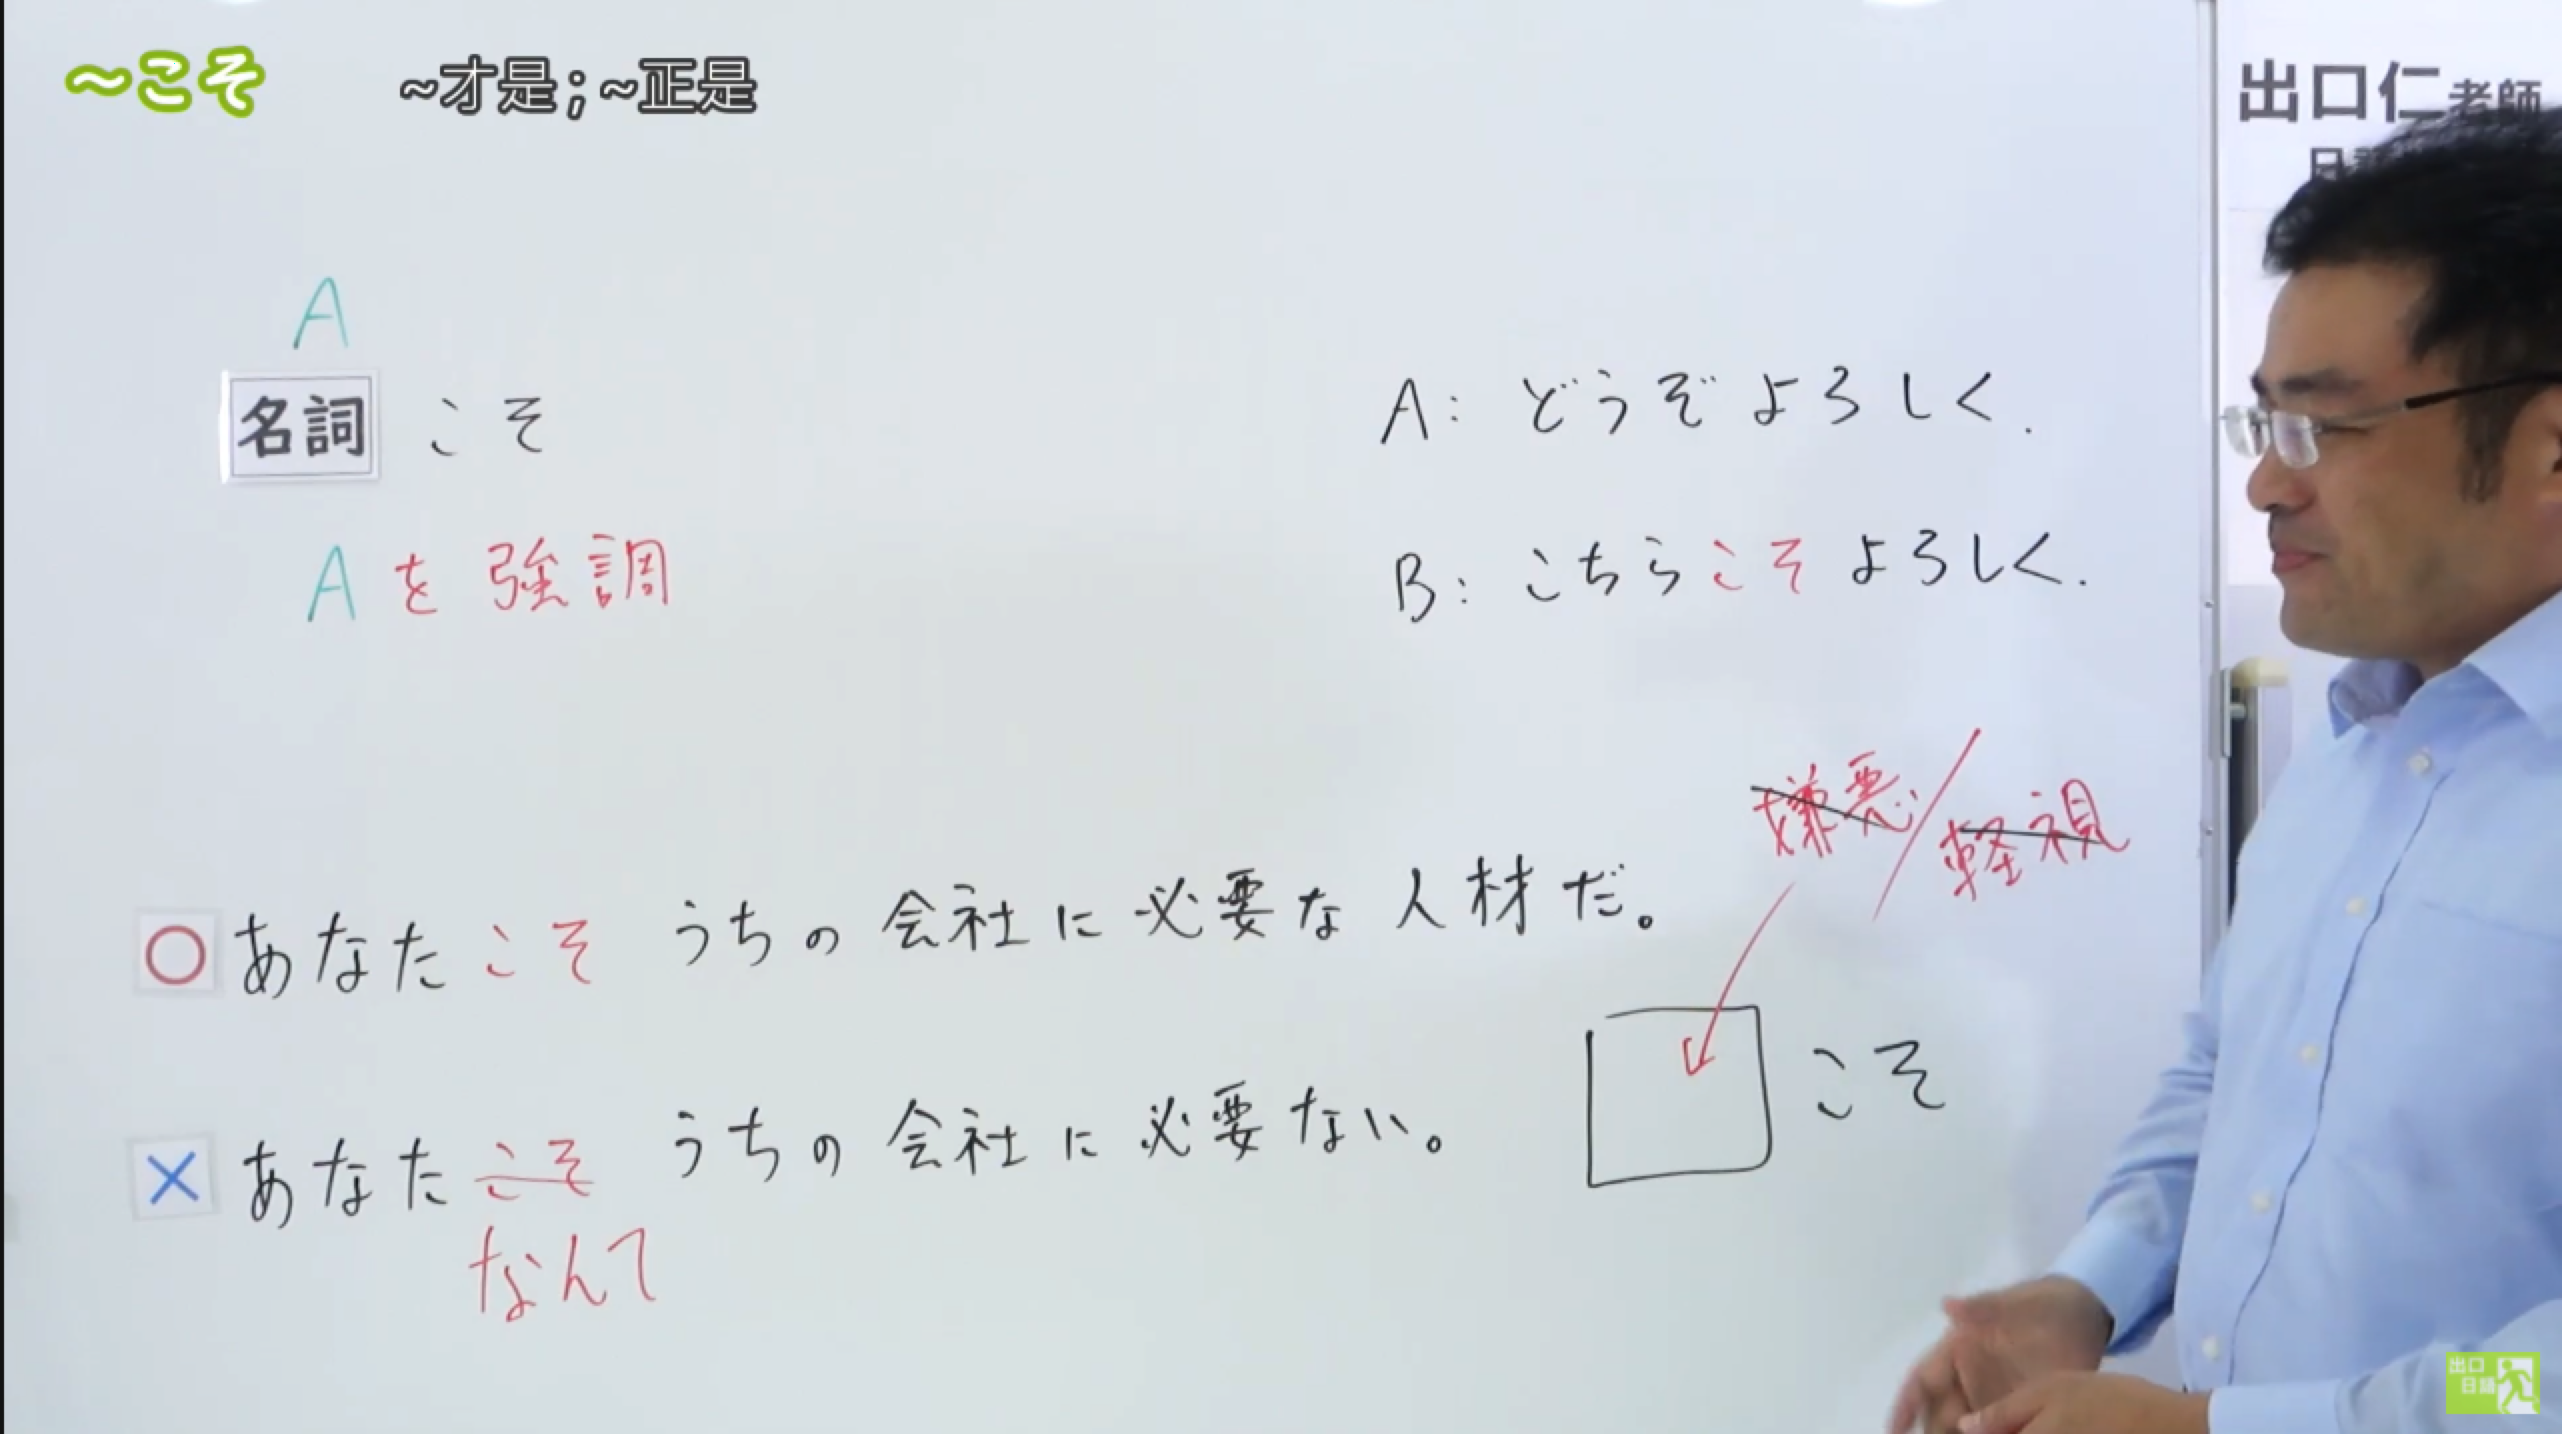 ～こそ ~才是；~正是
出口仁老師
A
名詞 こそ
Aを強調
A: どうぞよろしく.
B: こちらこそよろしく.
嫌悪/軽視
○ あなたこそ うちの会社に必要な人材だ。
こそ
× あなたこそ うちの会社に必要ない。
なんて
出口
日語